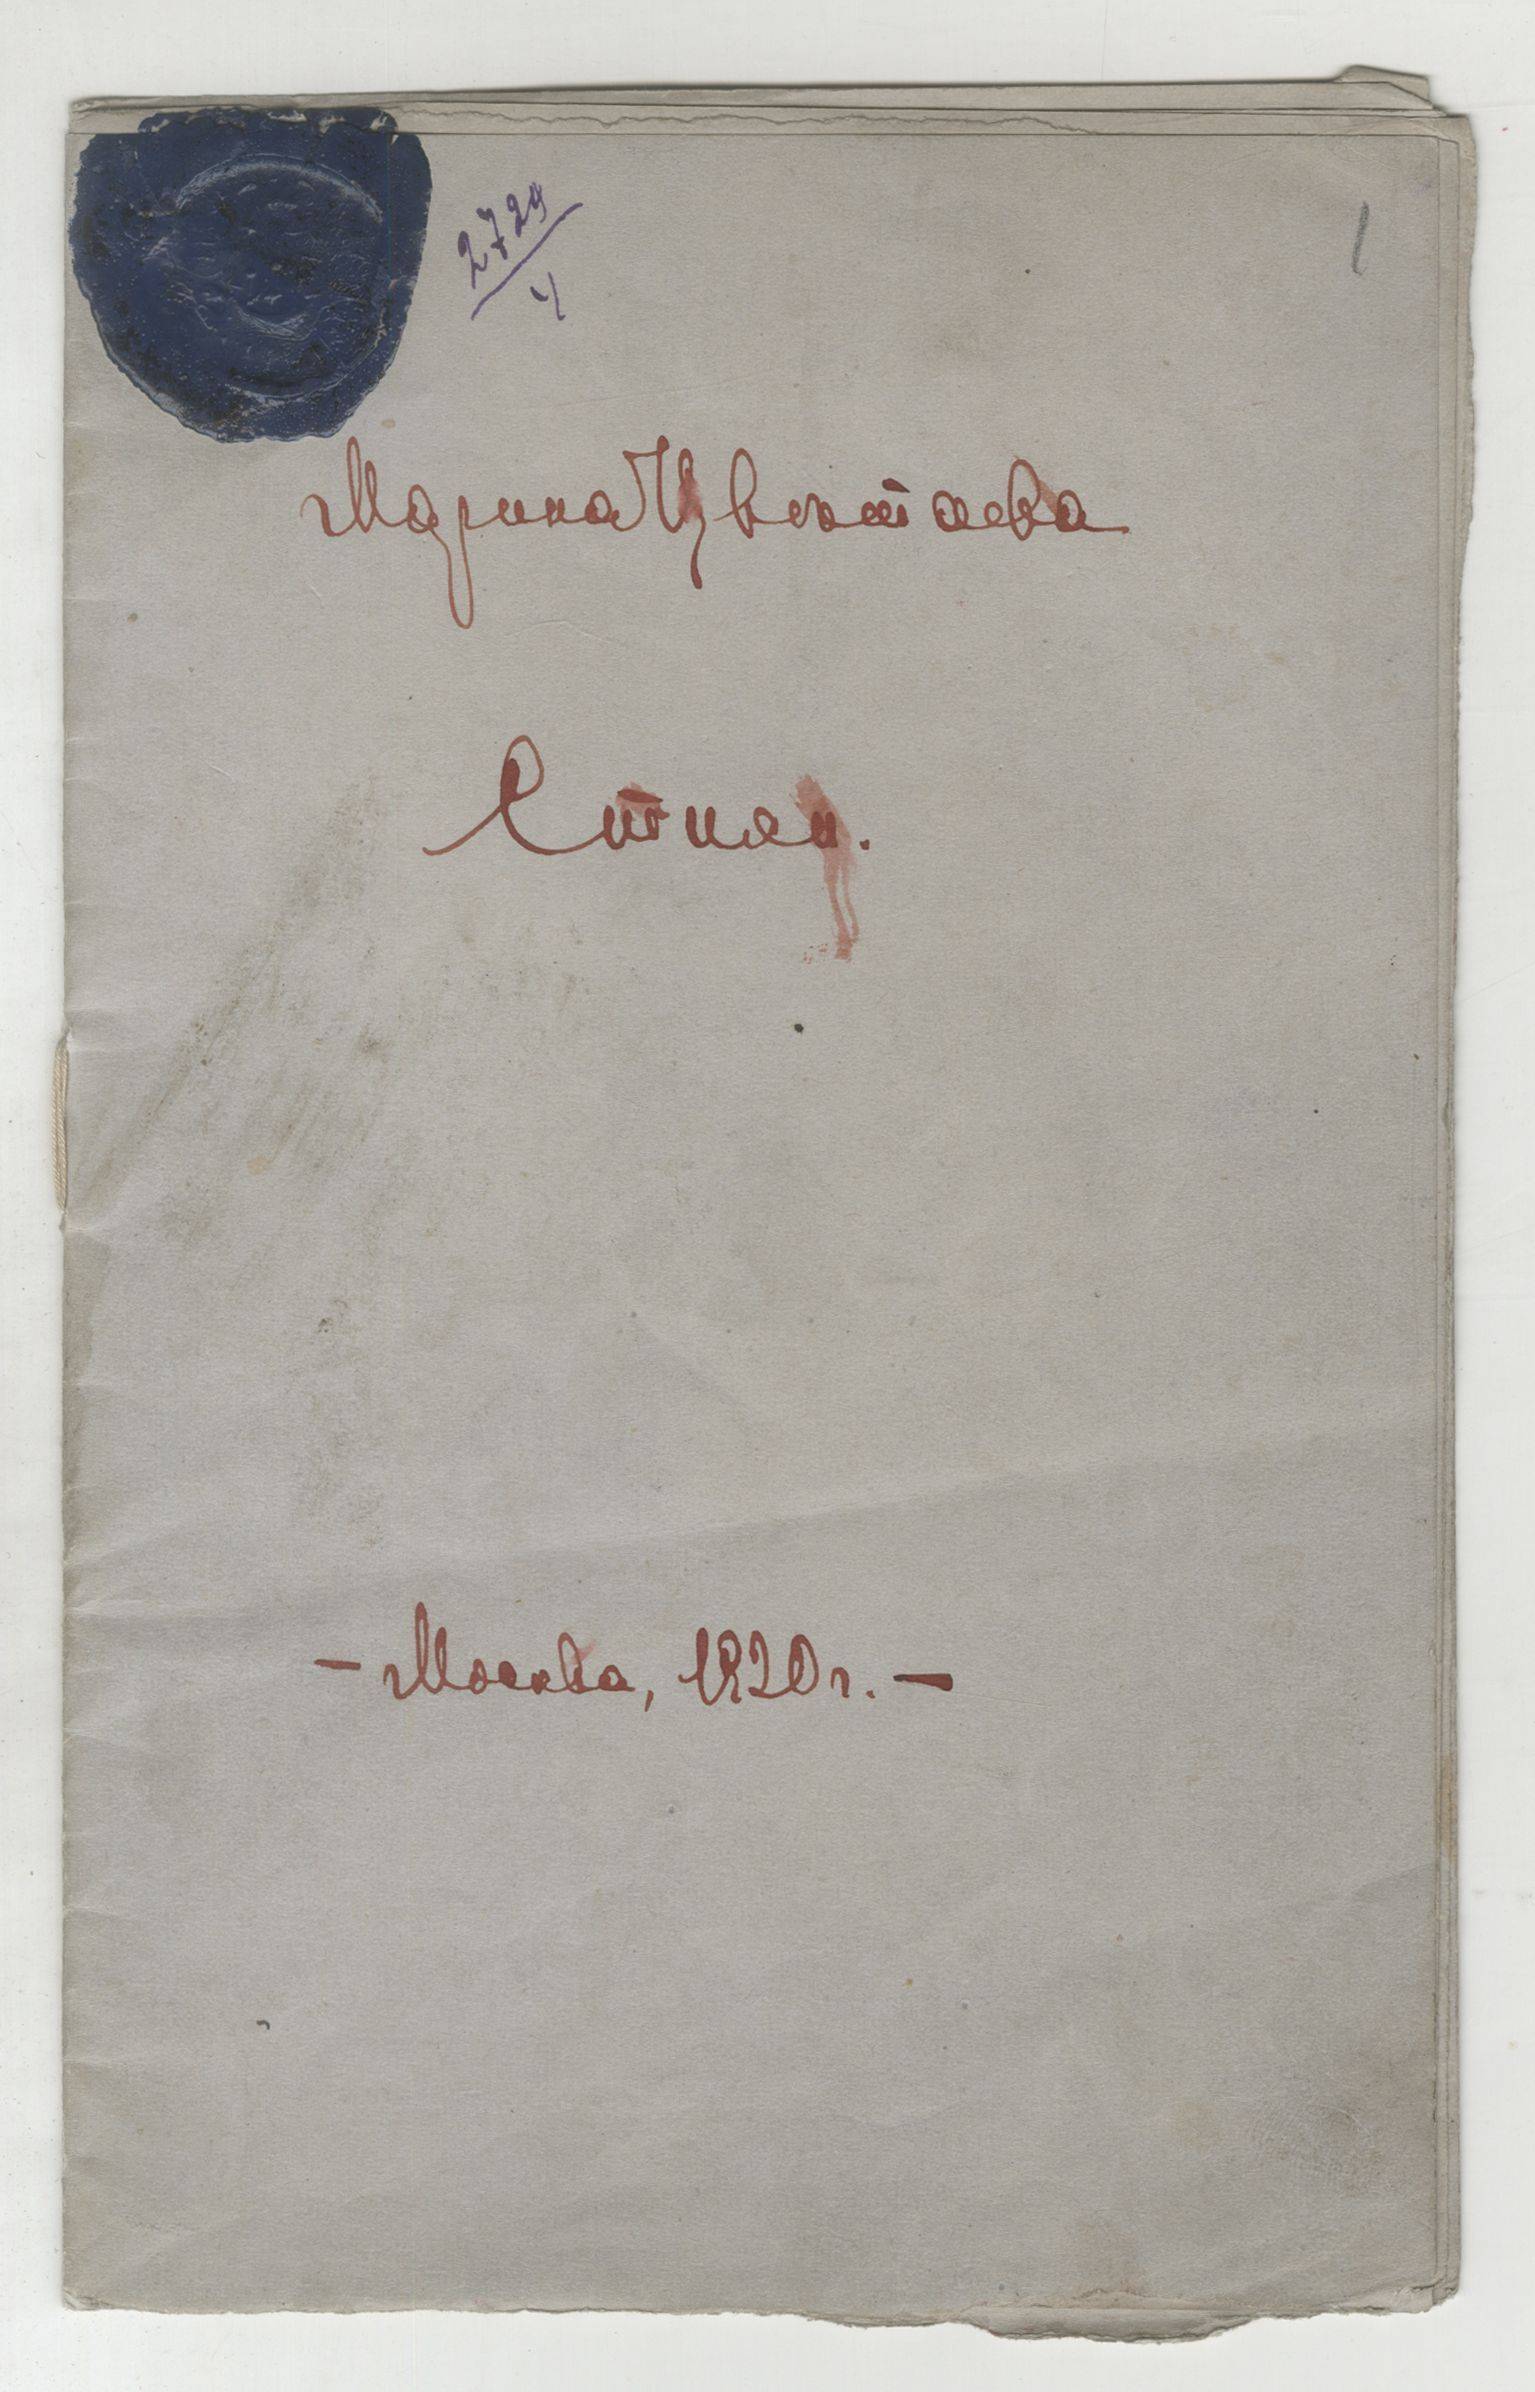 1
2729
4
Марина Цвѣтаева
Стихи.
– Москва, 1920 г. –